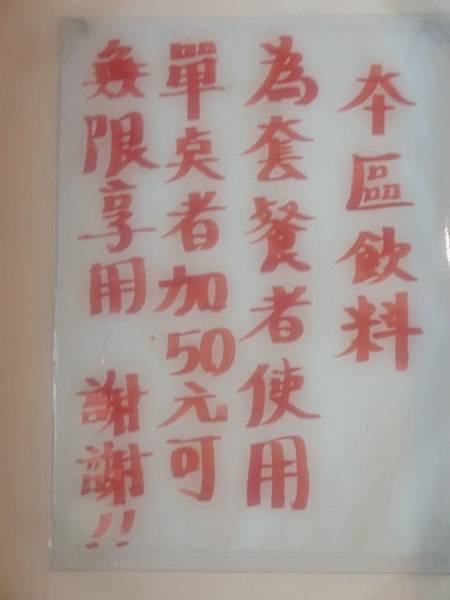 本區飲料
為套餐者使用
單点者加50元可
無限享用 謝謝!!